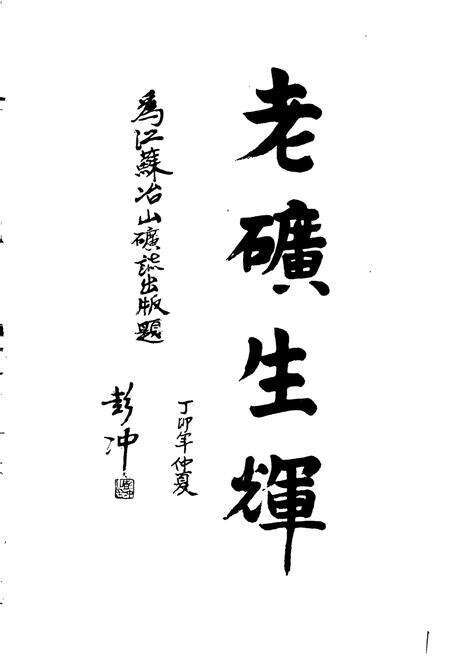 老礦生輝
為江蘇冶山礦誌出版題
丁卯年仲夏
彭冲